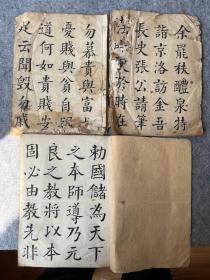 余罷秩醴泉特
詣京洛訪金吾
長史張公請筆
法長史於時在
勿慕貴與富勿
憂賤與貧自問
道何如貴賤安
足云聞毀勿戚
勅國儲為天下
之本師導乃元
良之教將以本
固必由教先非